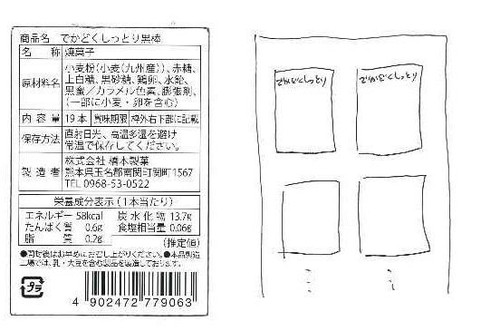 商品名 でかどくしっとり黒棒
名 称 焼菓子
原材料名 小麦粉(小麦(九州産))、赤糖、
上白糖、黒砂糖、鶏卵、水飴、
黒蜜／カラメル色素、膨張剤、
(一部に小麦・卵を含む)
内 容 量 19本 賞味期限 枠外右下部に記載
保存方法 直射日光、高温多湿を避け
常温で保存してください。
製 造 者 株式会社 橋本製菓
熊本県玉名郡南関町関町1567
TEL 0968-53-0522
栄養成分表示(1本当たり)
エネルギー 58kcal 炭水化物 13.7g
たんぱく質 0.6g 食塩相当量 0.06g
脂 質 0.2g
(推定値)
●開封後はお早めにお召し上がりください。●本品製造
工場では、乳・大豆を含む製品を製造しております。
プラ
4 902472 779063
でかどくしっとり
でかどくしっとり